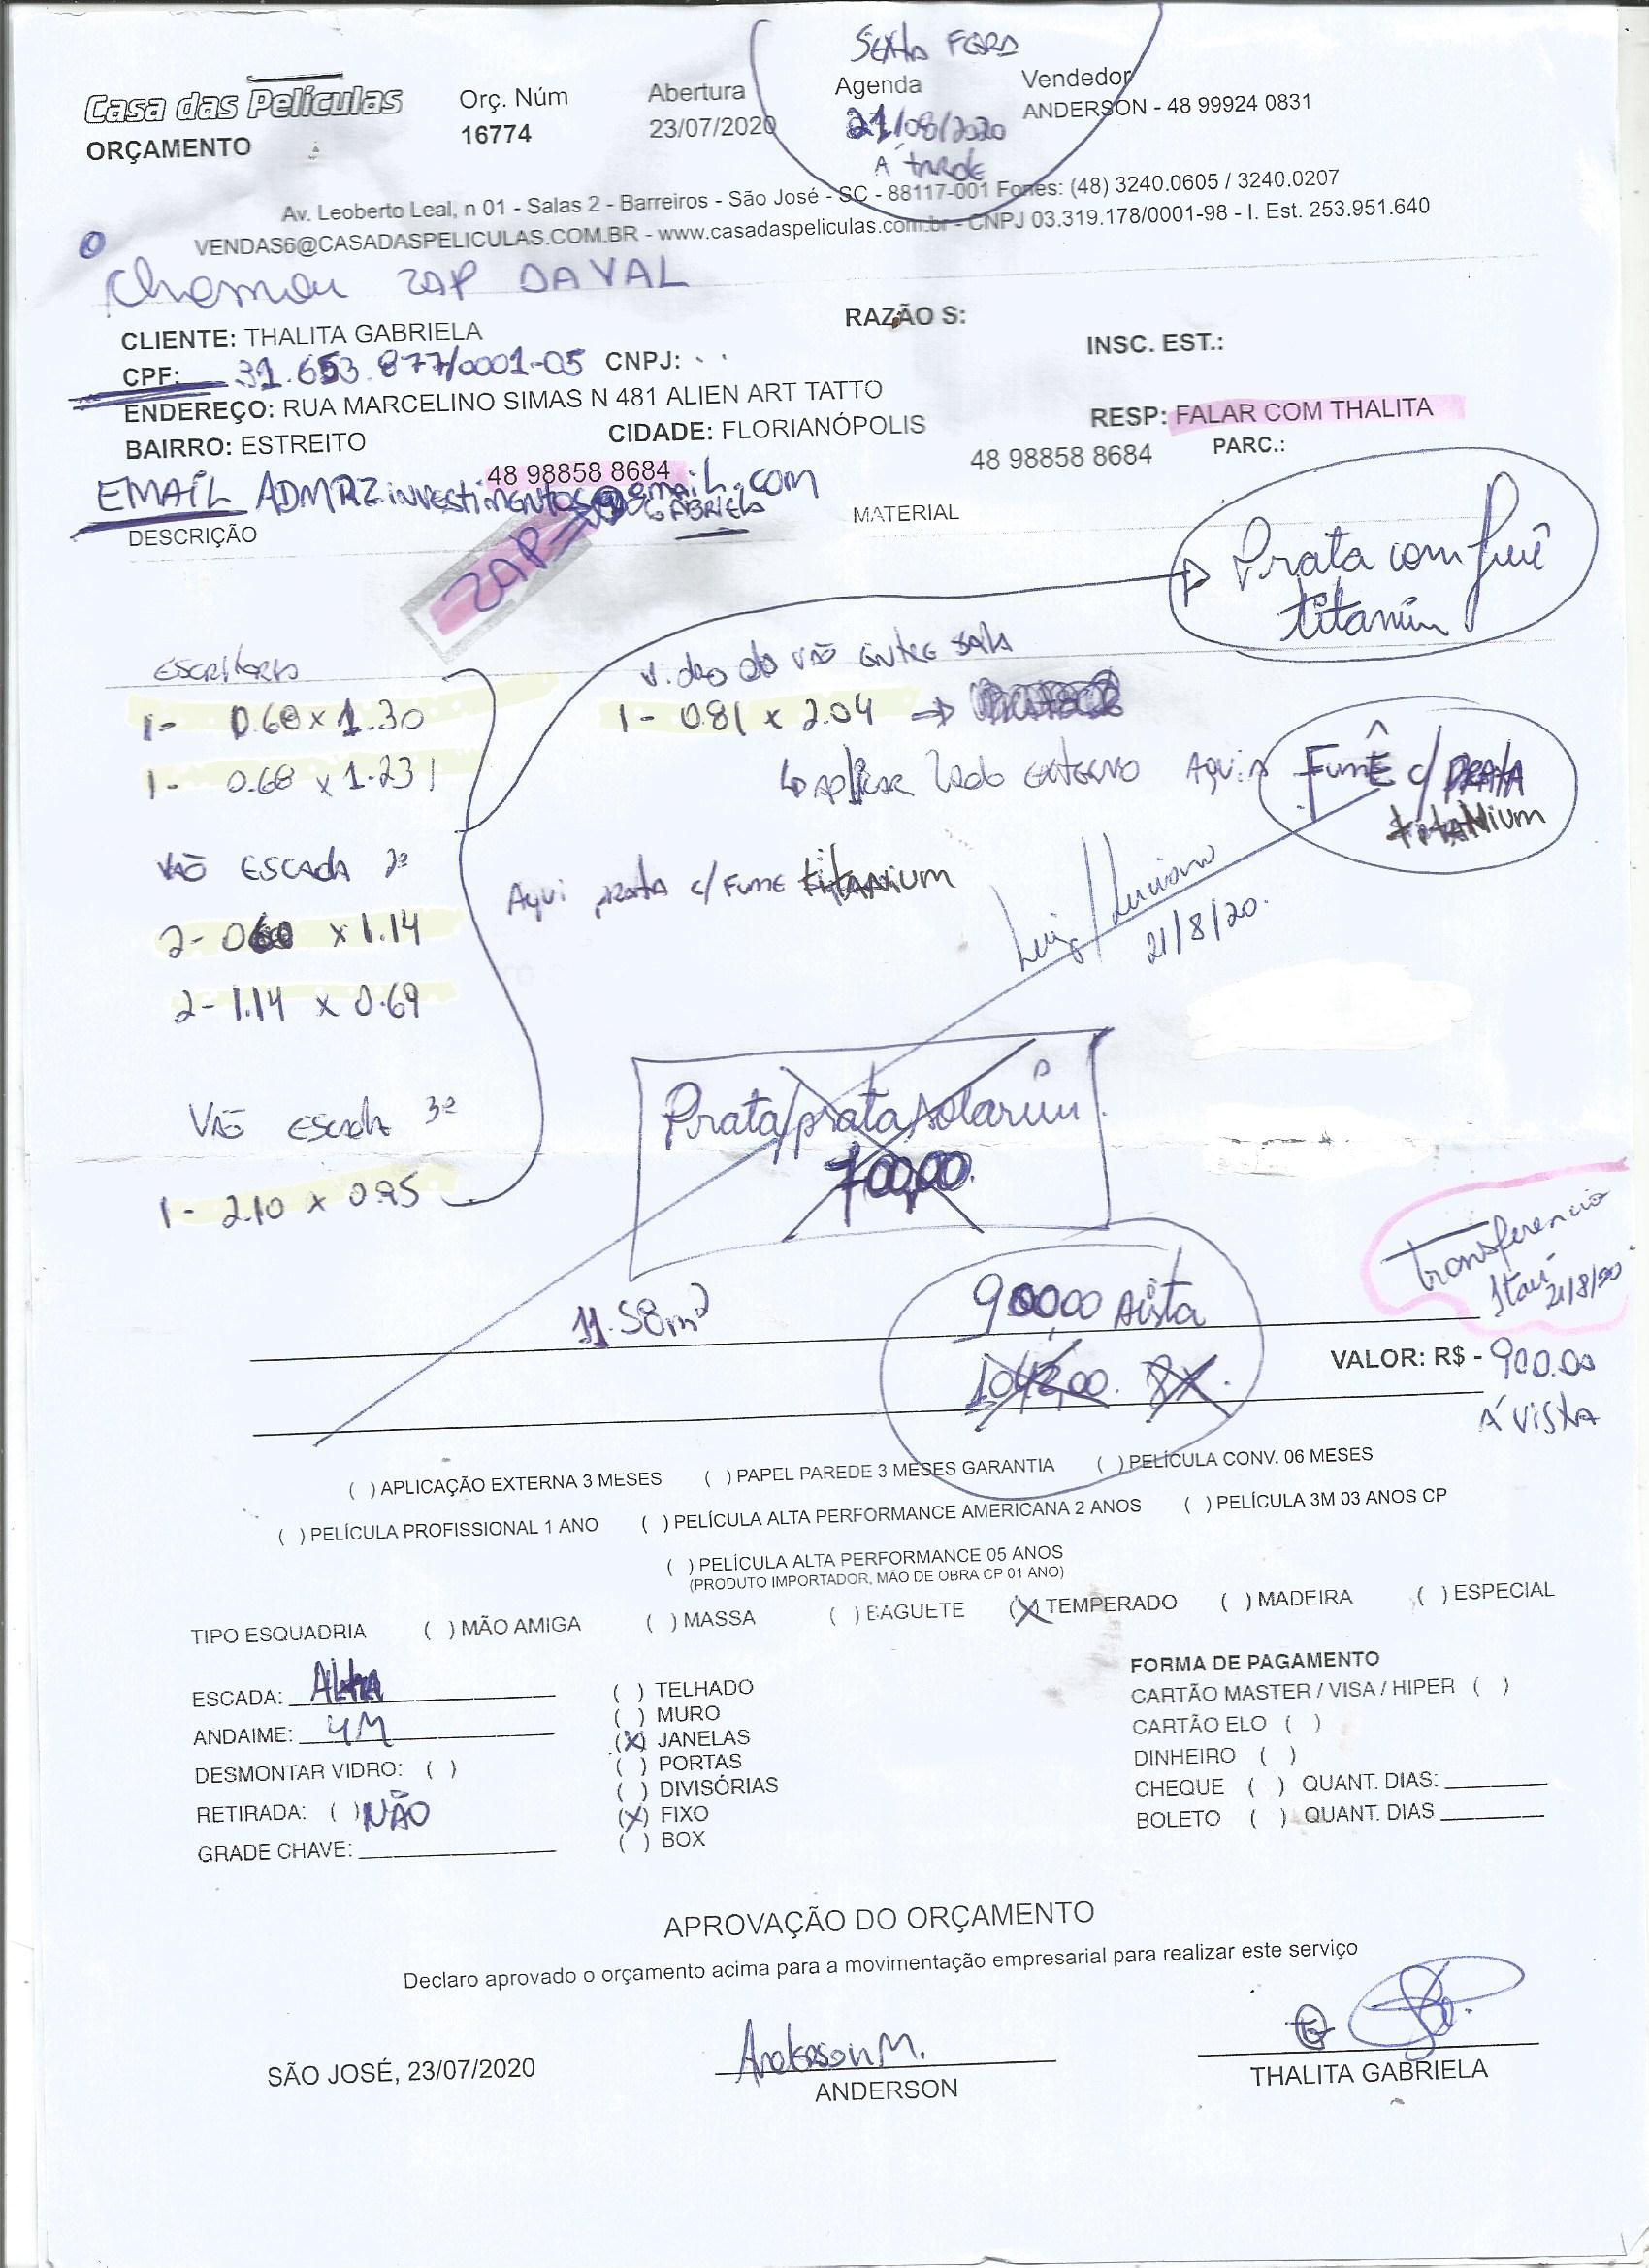 SEXTA FERA
Casa das Películas Orç. Núm Abertura Agenda Vendedor
ORÇAMENTO 16774 23/07/2020 21/08/2020 ANDERSON - 48 99924 0831
A TARDE
Av. Leoberto Leal, n 01 - Salas 2 - Barreiros - São José - SC - 88117-001 Fones: (48) 3240.0605 / 3240.0207
VENDAS6@CASADASPELICULAS.COM.BR - www.casadaspeliculas.com.br - CNPJ 03.319.178/0001-98 - I. Est. 253.951.640
Chamou ZAP DAVAL
CLIENTE: THALITA GABRIELA RAZÃO S:
CPF: 31.653.877/0001-05 CNPJ: INSC. EST.:
ENDEREÇO: RUA MARCELINO SIMAS N 481 ALIEN ART TATTO
BAIRRO: ESTREITO CIDADE: FLORIANÓPOLIS RESP: FALAR COM THALITA
48 98858 8684 48 98858 8684 PARC.:
EMAIL ADMRZinvestimentos@gmail.com
GABRIELA
DESCRIÇÃO MATERIAL
ZAP
Prata com fumê
titaniun
ESCRITORIO V.dro do VÃO ENTRE SALA
1- 0.68 x 1.30 1- 0.81 x 2.04
1- 0.68 x 1.231 APLICAR LADO EXTERNO AQUI FUMÊ c/ PRATA
titaNium
VÃO ESCADA 2ª Aqui PRATA c/ FUME titANium
Luiz/Luciano
21/8/20.
2- 060 x 1.14
2- 1.14 x 0.69
Prata/prata/solarium
700,00.
VÃO ESCADA 3ª
1- 2.10 x 0.95
Transferencia
Itaú
21/8/20
11.58m² 90000 Avista
VALOR: R$ - 900.00
1042,00. 8X.
A VISTA
( ) APLICAÇÃO EXTERNA 3 MESES ( ) PAPEL PAREDE 3 MESES GARANTIA ( ) PELÍCULA CONV. 06 MESES
( ) PELÍCULA PROFISSIONAL 1 ANO ( ) PELÍCULA ALTA PERFORMANCE AMERICANA 2 ANOS ( ) PELÍCULA 3M 03 ANOS CP
( ) PELÍCULA ALTA PERFORMANCE 05 ANOS
(PRODUTO IMPORTADOR, MÃO DE OBRA CP 01 ANO)
TIPO ESQUADRIA ( ) MÃO AMIGA ( ) MASSA ( ) BAGUETE (X) TEMPERADO ( ) MADEIRA ( ) ESPECIAL
ESCADA: Alta
ANDAIME: 4M
DESMONTAR VIDRO: ( )
RETIRADA: ( ) NÃO
GRADE CHAVE:
( ) TELHADO
( ) MURO
(X) JANELAS
( ) PORTAS
( ) DIVISÓRIAS
(X) FIXO
( ) BOX
FORMA DE PAGAMENTO
CARTÃO MASTER / VISA / HIPER ( )
CARTÃO ELO ( )
DINHEIRO ( )
CHEQUE ( ) QUANT. DIAS:
BOLETO ( ) QUANT. DIAS
APROVAÇÃO DO ORÇAMENTO
Declaro aprovado o orçamento acima para a movimentação empresarial para realizar este serviço
Anderson M.
SÃO JOSÉ, 23/07/2020 ANDERSON THALITA GABRIELA